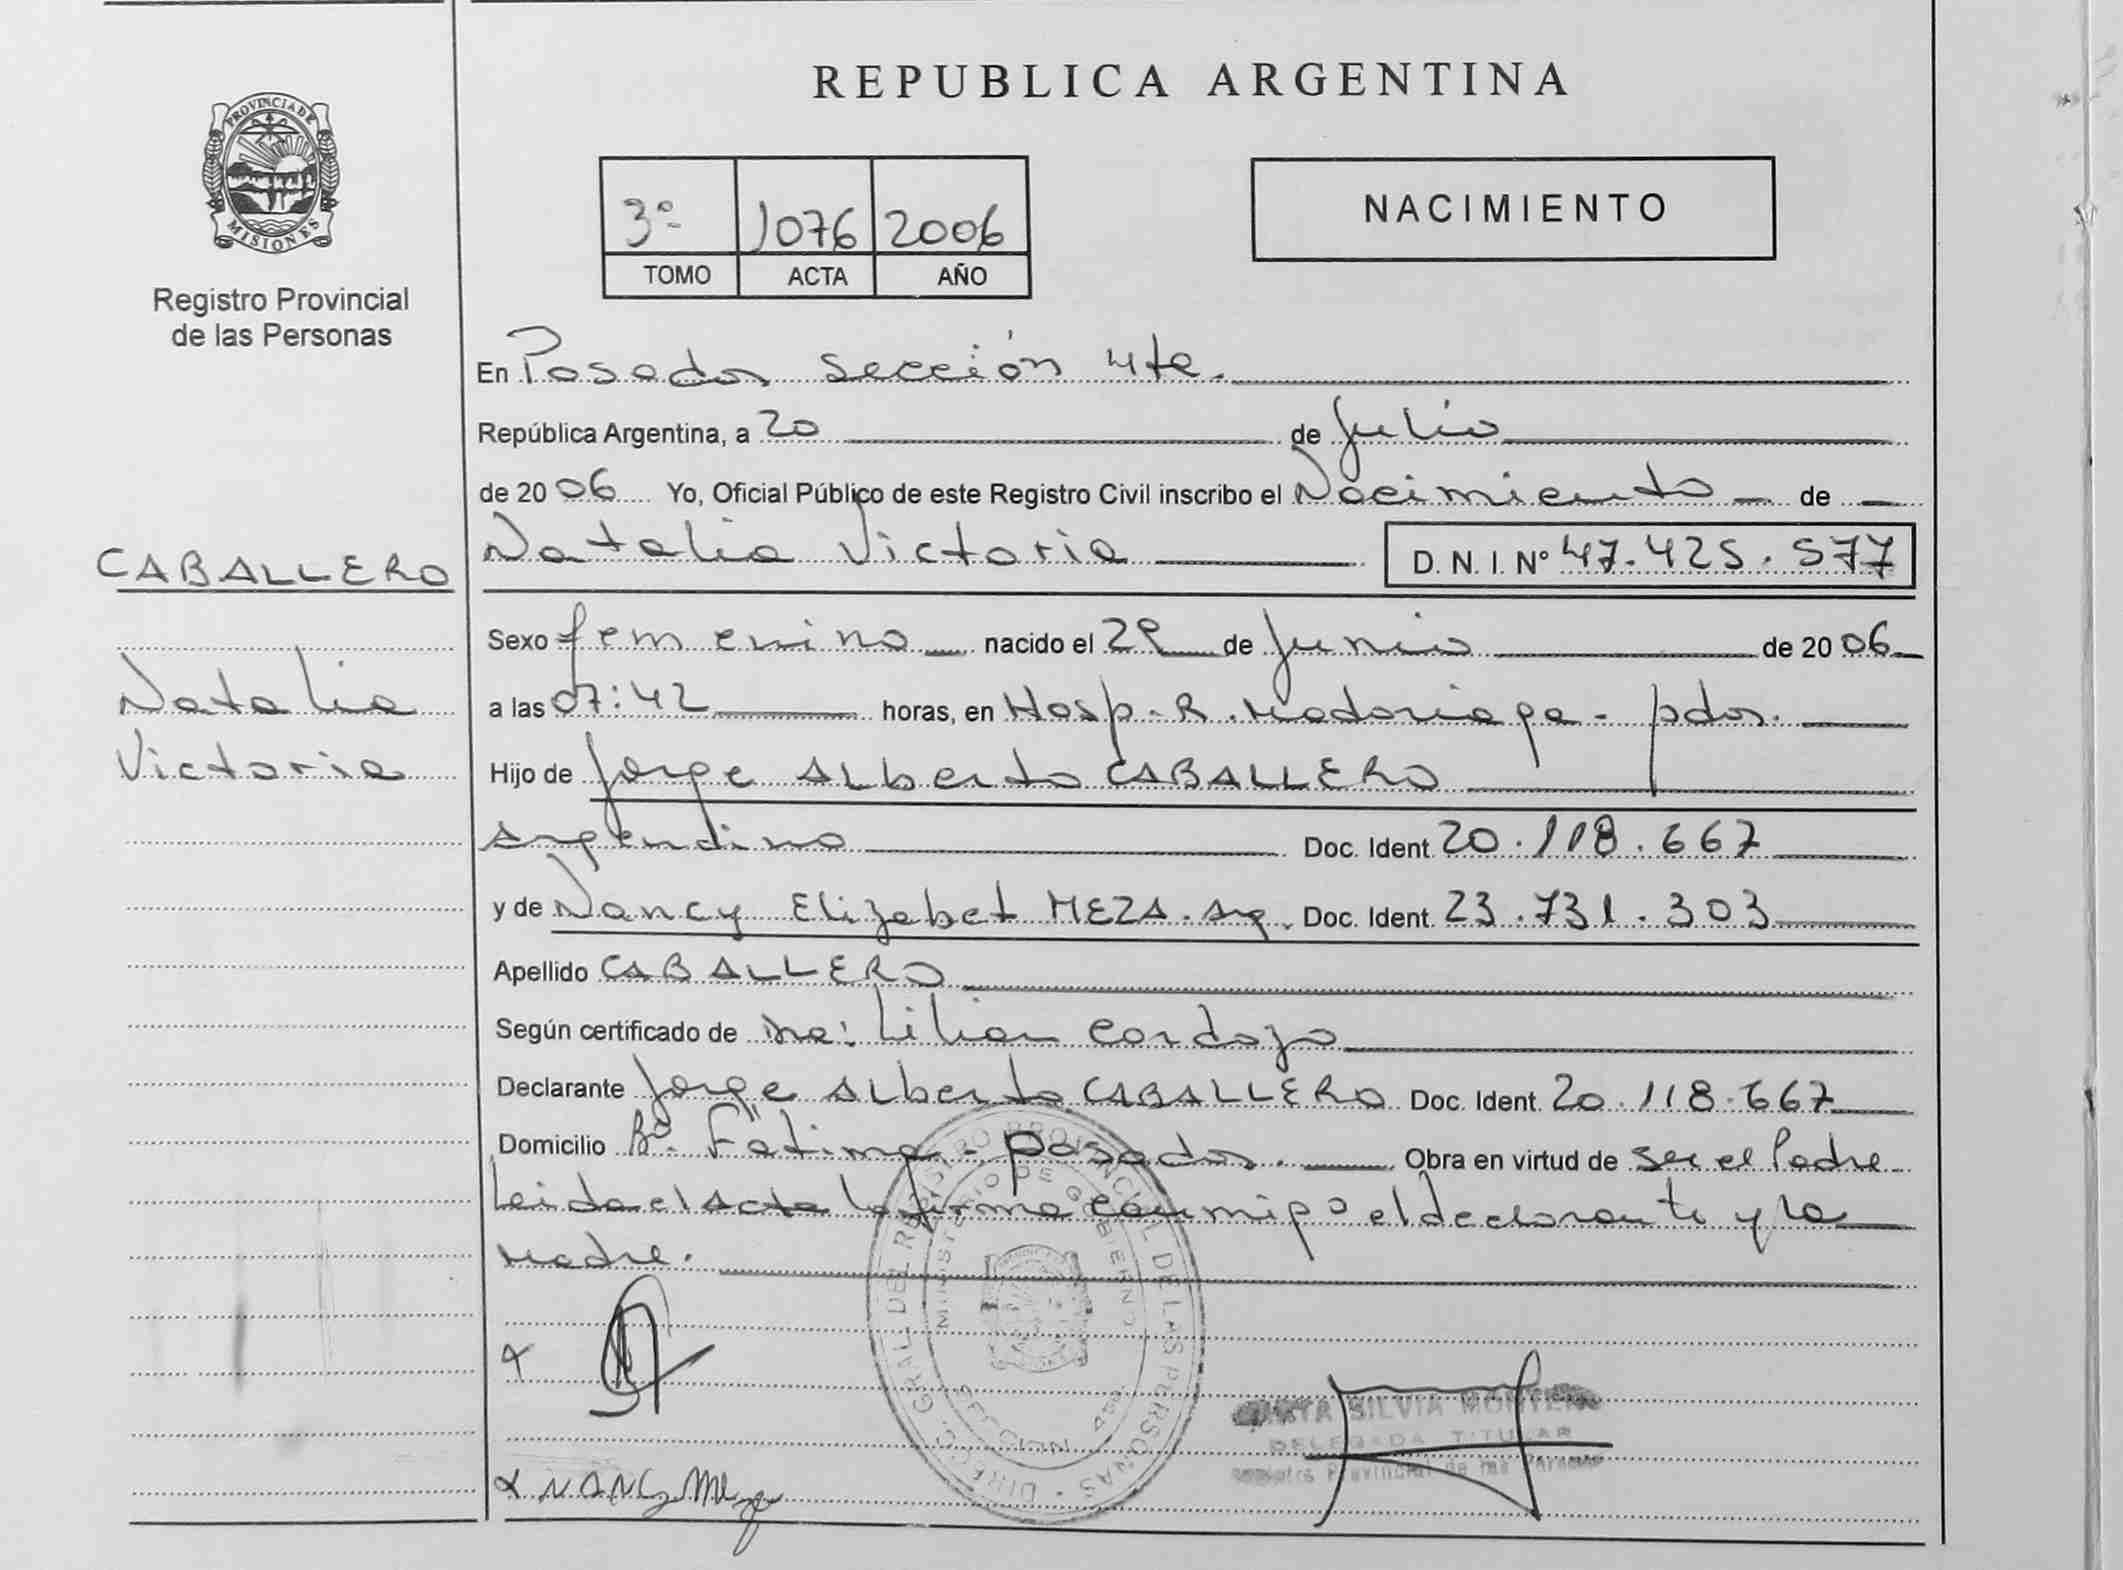 REPUBLICA ARGENTINA
PROVINCIA DE
MISIONES
Registro Provincial
de las Personas
3º 1076 2006
TOMO ACTA AÑO
NACIMIENTO
En Posadas sección 4ta.
República Argentina, a 20 de Julio
de 2006 Yo, Oficial Público de este Registro Civil inscribo el Nacimiento de
CABALLERO
Natalia Victoria D. N. I. Nº 47.425.577
Natalia
Victoria
Sexo femenino nacido el 29 de Junio de 2006
a las 07:42 horas, en Hosp. R. Madariaga - pdas.
Hijo de Jorge Alberto CABALLERO
argentino Doc. Ident. 20.118.667
y de Nancy Elizabet MEZA. arg. Doc. Ident. 23.731.303
Apellido CABALLERO
Según certificado de Dra: Lilian Cardozo
Declarante Jorge Alberto CABALLERO Doc. Ident. 20.118.667
Domicilio Bº. Fátima - posadas. Obra en virtud de ser el Padre
Leida el acta la firma conmigo el declarante y la
madre.
DIRECC. GRAL. DEL REGISTRO PROVINCIAL DE LAS PERSONAS
MINISTERIO DE GOBIERNO
SECCION
SILVIA
DELEGADA TITULAR
Registro Provincial de las Personas
Nancy Meza